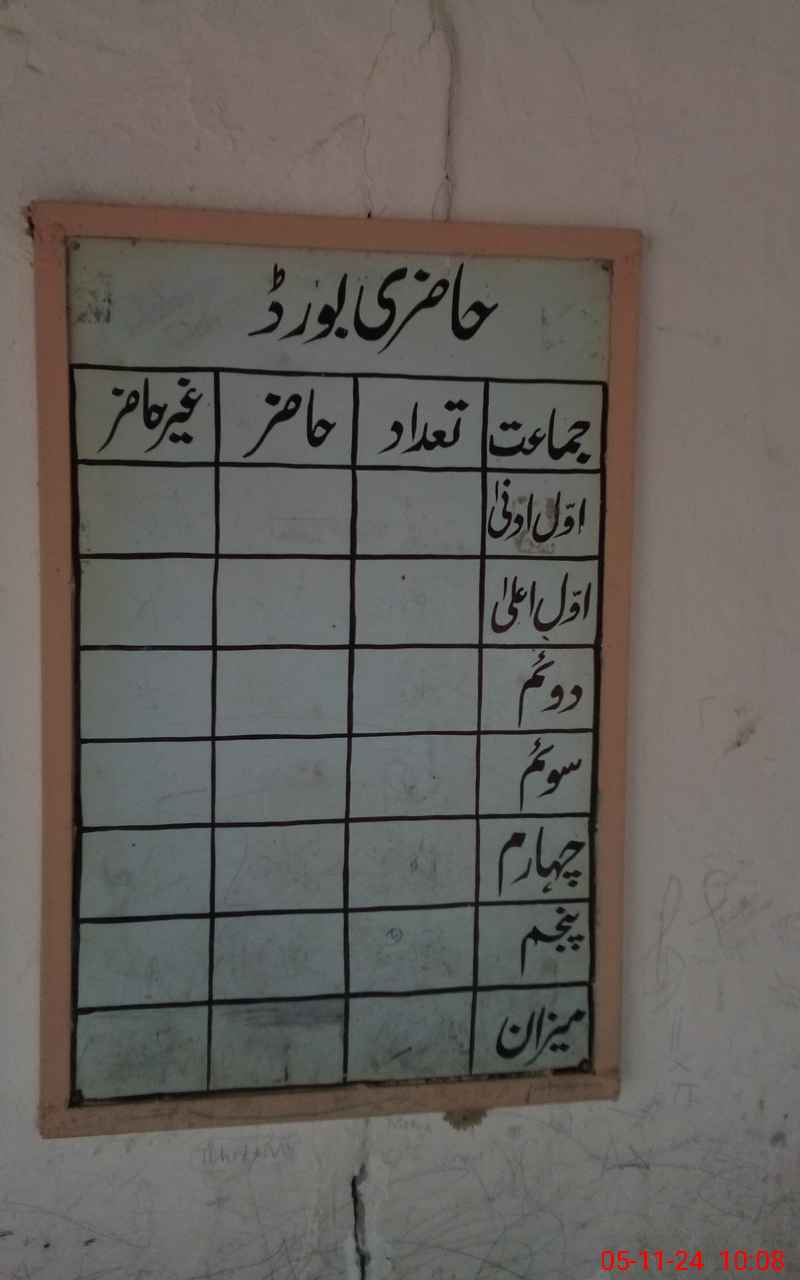 حاضری بورڈ
جماعت تعداد حاضر غیر حاضر
اوّل ادنیٰ
اوّل اعلیٰ
دوئم
سوئم
چہارم
پنجم
میزان
05-11-24 10:08